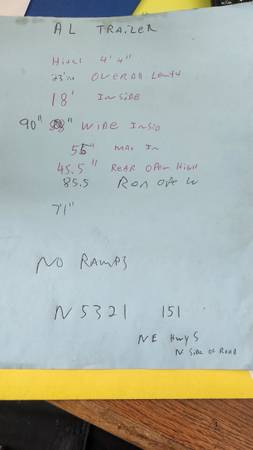 AL TRAILER
Hight 4'4"
OVERALL Length
18' INSIDE
90" WIDE INSID
56" MAX IN
45.5" REAR OPEN HIGH
85.5 Rear OPE W
71"
NO RAMPS
N5321 151
NE Hwy S
N Side of Road